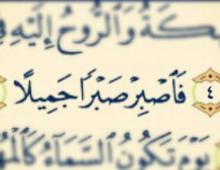 وَٱلرُّوحُ إِلَيْهِ فِي
٤ فَٱصْبِرْ صَبْرًا جَمِيلًا
يَوْمَ تَكُونُ ٱلسَّمَآءُ